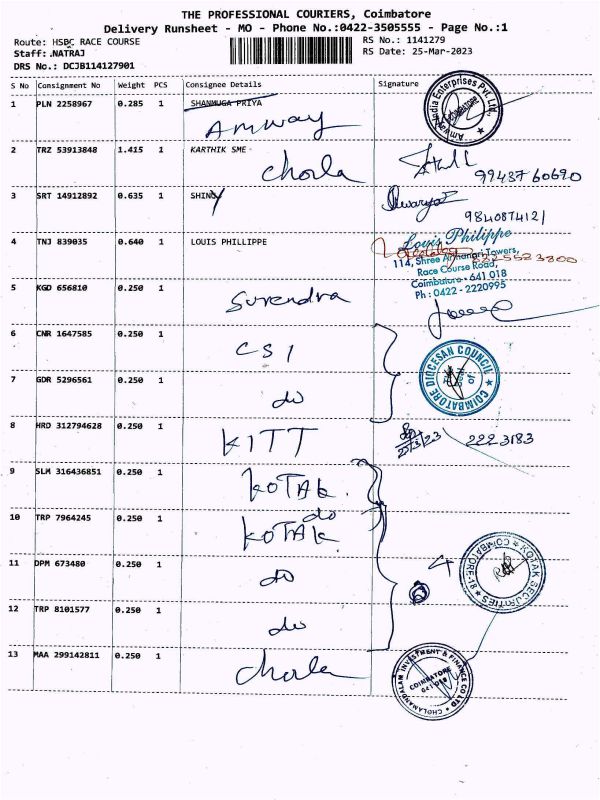 THE PROFESSIONAL COURIERS, Coimbatore
Delivery Runsheet - MO - Phone No.:0422-3505555 - Page No.:1
Route: HSBC RACE COURSE RS No.: 1141279
Staff:.NATRAJ RS Date: 25-Mar-2023
DRS No.: DCJB114127901
S No Consignment No Weight PCS Consignee Details Signature
1 PLN 2258967 0.285 1 SHANMUGA PRIYA
Amway
2 TRZ 53913848 1.415 1 KARTHIK SME
Chola
99437 60690
3 SRT 14912892 0.635 1 SHINO
9840874121
4 TNJ 839035 0.640 1 LOUIS PHILLIPPE
Louis Philippe
114, Shree Annanari Towers,
Race Course Road,
Coimbatore - 641 018
Ph : 0422 - 2220995
5 KGD 656810 0.250 1
Surendra
6 CNR 1647585 0.250 1
CSI
COIMBATORE DIOCESAN COUNCIL
7 GDR 5296561 0.250 1
do
8 HRD 312794628 0.250 1
KITT
25/3/23 2223183
9 SLM 316436851 0.250 1
KOTAK.
10 TRP 7964245 0.250 1
do
KOTAK
11 DPM 673480 0.250 1
do
4
KOTAK SECURITIES COIMBATORE-18
12 TRP 8101577 0.250 1
do
13 MAA 299142811 0.250 1
Chola
CHOLAMANDALAM INVESTMENT & FINANCE CO LTD
COIMBATORE
641 018